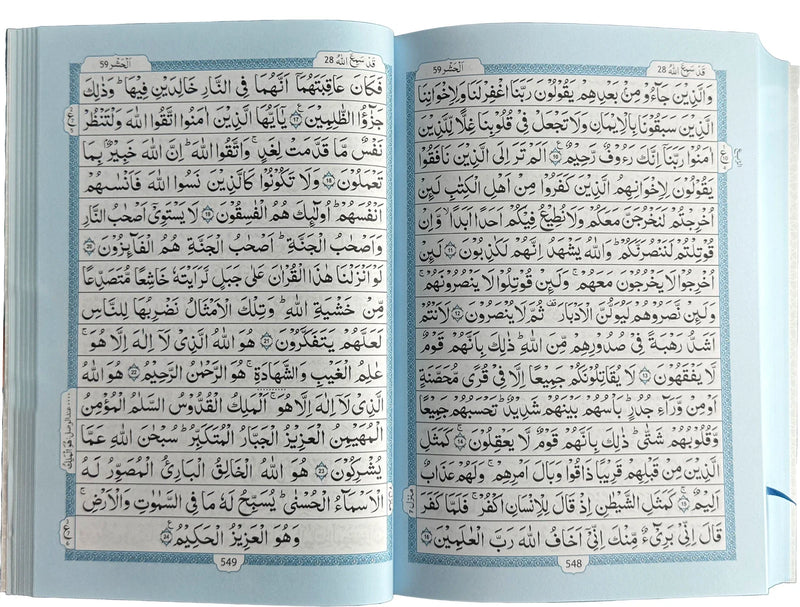 اَلْحَشْر 59
قَدْ سَمِعَ اللّٰهُ 28
وَالَّذِيْنَ جَآءُوْ مِنْۢ بَعْدِهِمْ يَقُوْلُوْنَ رَبَّنَا اغْفِرْ لَنَا وَلِاِخْوَانِنَا
الَّذِيْنَ سَبَقُوْنَا بِالْاِيْمَانِ وَلَا تَجْعَلْ فِيْ قُلُوْبِنَا غِلًّا لِّلَّذِيْنَ
اٰمَنُوْا رَبَّنَاۤ اِنَّكَ رَءُوْفٌ رَّحِيْمٌ ۝10 اَلَمْ تَرَ اِلَى الَّذِيْنَ نَافَقُوْا
يَقُوْلُوْنَ لِاِخْوَانِهِمُ الَّذِيْنَ كَفَرُوْا مِنْ اَهْلِ الْكِتٰبِ لَئِنْ
اُخْرِجْتُمْ لَنَخْرُجَنَّ مَعَكُمْ وَلَا نُطِيْعُ فِيْكُمْ اَحَدًا اَبَدًاۙ وَّاِنْ
قُوْتِلْتُمْ لَنَنْصُرَنَّكُمْؕ وَاللّٰهُ يَشْهَدُ اِنَّهُمْ لَكٰذِبُوْنَ ۝11 لَئِنْ
اُخْرِجُوْا لَا يَخْرُجُوْنَ مَعَهُمْۚ وَلَئِنْ قُوْتِلُوْا لَا يَنْصُرُوْنَهُمْۚ
وَلَئِنْ نَّصَرُوْهُمْ لَيُوَلُّنَّ الْاَدْبَارَ ثُمَّ لَا يُنْصَرُوْنَ ۝12 لَاَنْتُمْ
اَشَدُّ رَهْبَةً فِيْ صُدُوْرِهِمْ مِّنَ اللّٰهِؕ ذٰلِكَ بِاَنَّهُمْ قَوْمٌ
لَّا يَفْقَهُوْنَ ۝13 لَا يُقَاتِلُوْنَكُمْ جَمِيْعًا اِلَّا فِيْ قُرًى مُّحَصَّنَةٍ
اَوْ مِنْ وَّرَآءِ جُدُرٍؕ بَاْسُهُمْ بَيْنَهُمْ شَدِيْدٌؕ تَحْسَبُهُمْ جَمِيْعًا
وَّقُلُوْبُهُمْ شَتّٰىؕ ذٰلِكَ بِاَنَّهُمْ قَوْمٌ لَّا يَعْقِلُوْنَ ۝14 كَمَثَلِ
الَّذِيْنَ مِنْ قَبْلِهِمْ قَرِيْبًا ذَاقُوْا وَبَالَ اَمْرِهِمْۚ وَلَهُمْ عَذَابٌ
اَلِيْمٌ ۝15 كَمَثَلِ الشَّيْطٰنِ اِذْ قَالَ لِلْاِنْسَانِ اكْفُرْۚ فَلَمَّا كَفَرَ
قَالَ اِنِّيْ بَرِيْٓءٌ مِّنْكَ اِنِّيْۤ اَخَافُ اللّٰهَ رَبَّ الْعٰلَمِيْنَ ۝16
548
اَلْحَشْر 59
قَدْ سَمِعَ اللّٰهُ 28
فَكَانَ عَاقِبَتَهُمَاۤ اَنَّهُمَا فِي النَّارِ خَالِدَيْنِ فِيْهَاؕ وَذٰلِكَ
جَزٰٓؤُا الظّٰلِمِيْنَ ۝17 يٰۤاَيُّهَا الَّذِيْنَ اٰمَنُوا اتَّقُوا اللّٰهَ وَلْتَنْظُرْ
نَفْسٌ مَّا قَدَّمَتْ لِغَدٍۚ وَاتَّقُوا اللّٰهَؕ اِنَّ اللّٰهَ خَبِيْرٌۢ بِمَا
تَعْمَلُوْنَ ۝18 وَلَا تَكُوْنُوْا كَالَّذِيْنَ نَسُوا اللّٰهَ فَاَنْسٰىهُمْ
اَنْفُسَهُمْؕ اُولٰٓئِكَ هُمُ الْفٰسِقُوْنَ ۝19 لَا يَسْتَوِيْۤ اَصْحٰبُ النَّارِ
وَاَصْحٰبُ الْجَنَّةِؕ اَصْحٰبُ الْجَنَّةِ هُمُ الْفَآئِزُوْنَ ۝20
لَوْ اَنْزَلْنَا هٰذَا الْقُرْاٰنَ عَلٰى جَبَلٍ لَّرَاَيْتَهٗ خَاشِعًا مُّتَصَدِّعًا
مِّنْ خَشْيَةِ اللّٰهِؕ وَتِلْكَ الْاَمْثَالُ نَضْرِبُهَا لِلنَّاسِ
لَعَلَّهُمْ يَتَفَكَّرُوْنَ ۝21 هُوَ اللّٰهُ الَّذِيْ لَاۤ اِلٰهَ اِلَّا هُوَۚ
عٰلِمُ الْغَيْبِ وَالشَّهَادَةِۚ هُوَ الرَّحْمٰنُ الرَّحِيْمُ ۝22 هُوَ اللّٰهُ
الَّذِيْ لَاۤ اِلٰهَ اِلَّا هُوَۚ اَلْمَلِكُ الْقُدُّوْسُ السَّلٰمُ الْمُؤْمِنُ
الْمُهَيْمِنُ الْعَزِيْزُ الْجَبَّارُ الْمُتَكَبِّرُؕ سُبْحٰنَ اللّٰهِ عَمَّا
يُشْرِكُوْنَ ۝23 هُوَ اللّٰهُ الْخَالِقُ الْبَارِئُ الْمُصَوِّرُ لَهُ
الْاَسْمَآءُ الْحُسْنٰىؕ يُسَبِّحُ لَهٗ مَا فِي السَّمٰوٰتِ وَالْاَرْضِۚ
وَهُوَ الْعَزِيْزُ الْحَكِيْمُ ۝24
549